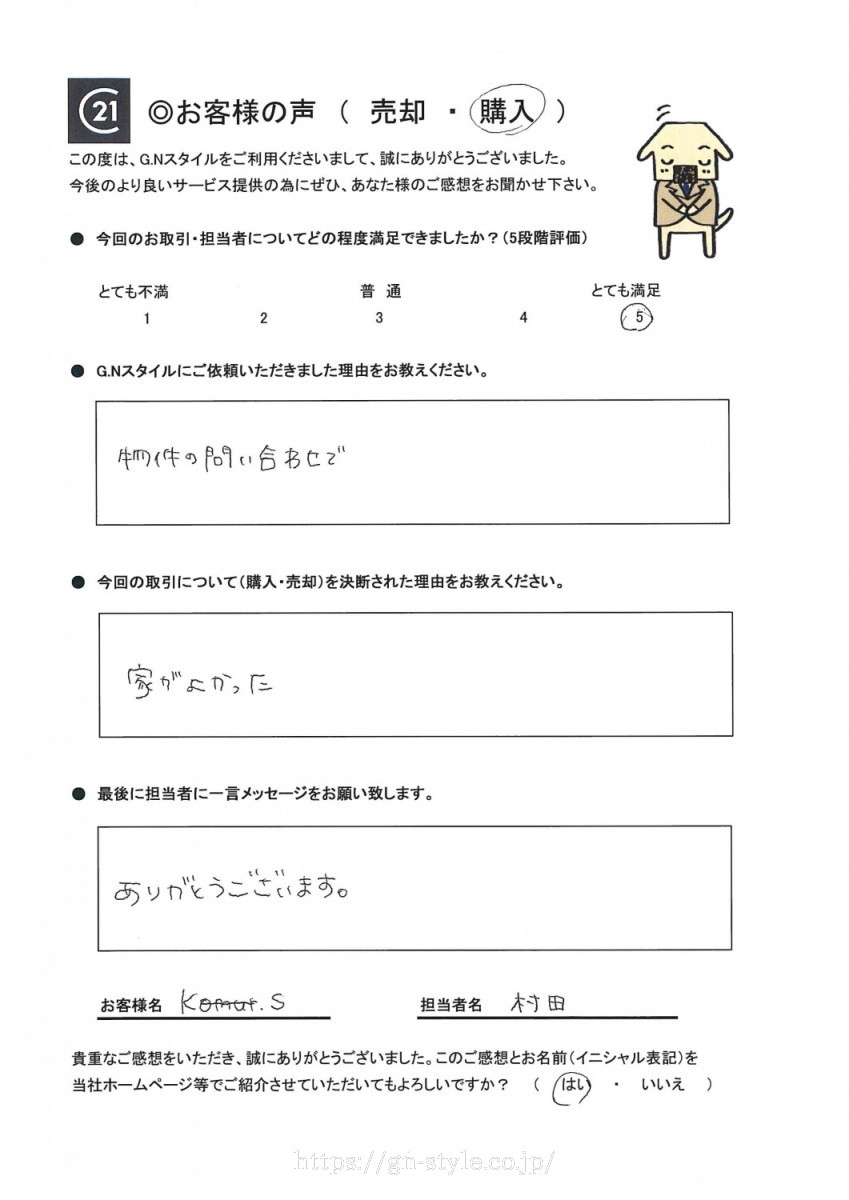 C21 ◎お客様の声 ( 売却 ・ 購入 )
この度は、G.Nスタイルをご利用くださいまして、誠にありがとうございました。
今後のより良いサービス提供の為にぜひ、あなた様のご感想をお聞かせ下さい。
● 今回のお取引・担当者についてどの程度満足できましたか？(5段階評価)
とても不満 普 通 とても満足
1 2 3 4 5
● G.Nスタイルにご依頼いただきました理由をお教えください。
物件の問い合わせで
● 今回の取引について(購入・売却)を決断された理由をお教えください。
家がよかった
● 最後に担当者に一言メッセージをお願い致します。
ありがとうございます。
お客様名 K.S 担当者名 村田
貴重なご感想をいただき、誠にありがとうございました。このご感想とお名前(イニシャル表記)を
当社ホームページ等でご紹介させていただいてもよろしいですか？ ( はい ・ いいえ )
https://gn-style.co.jp/